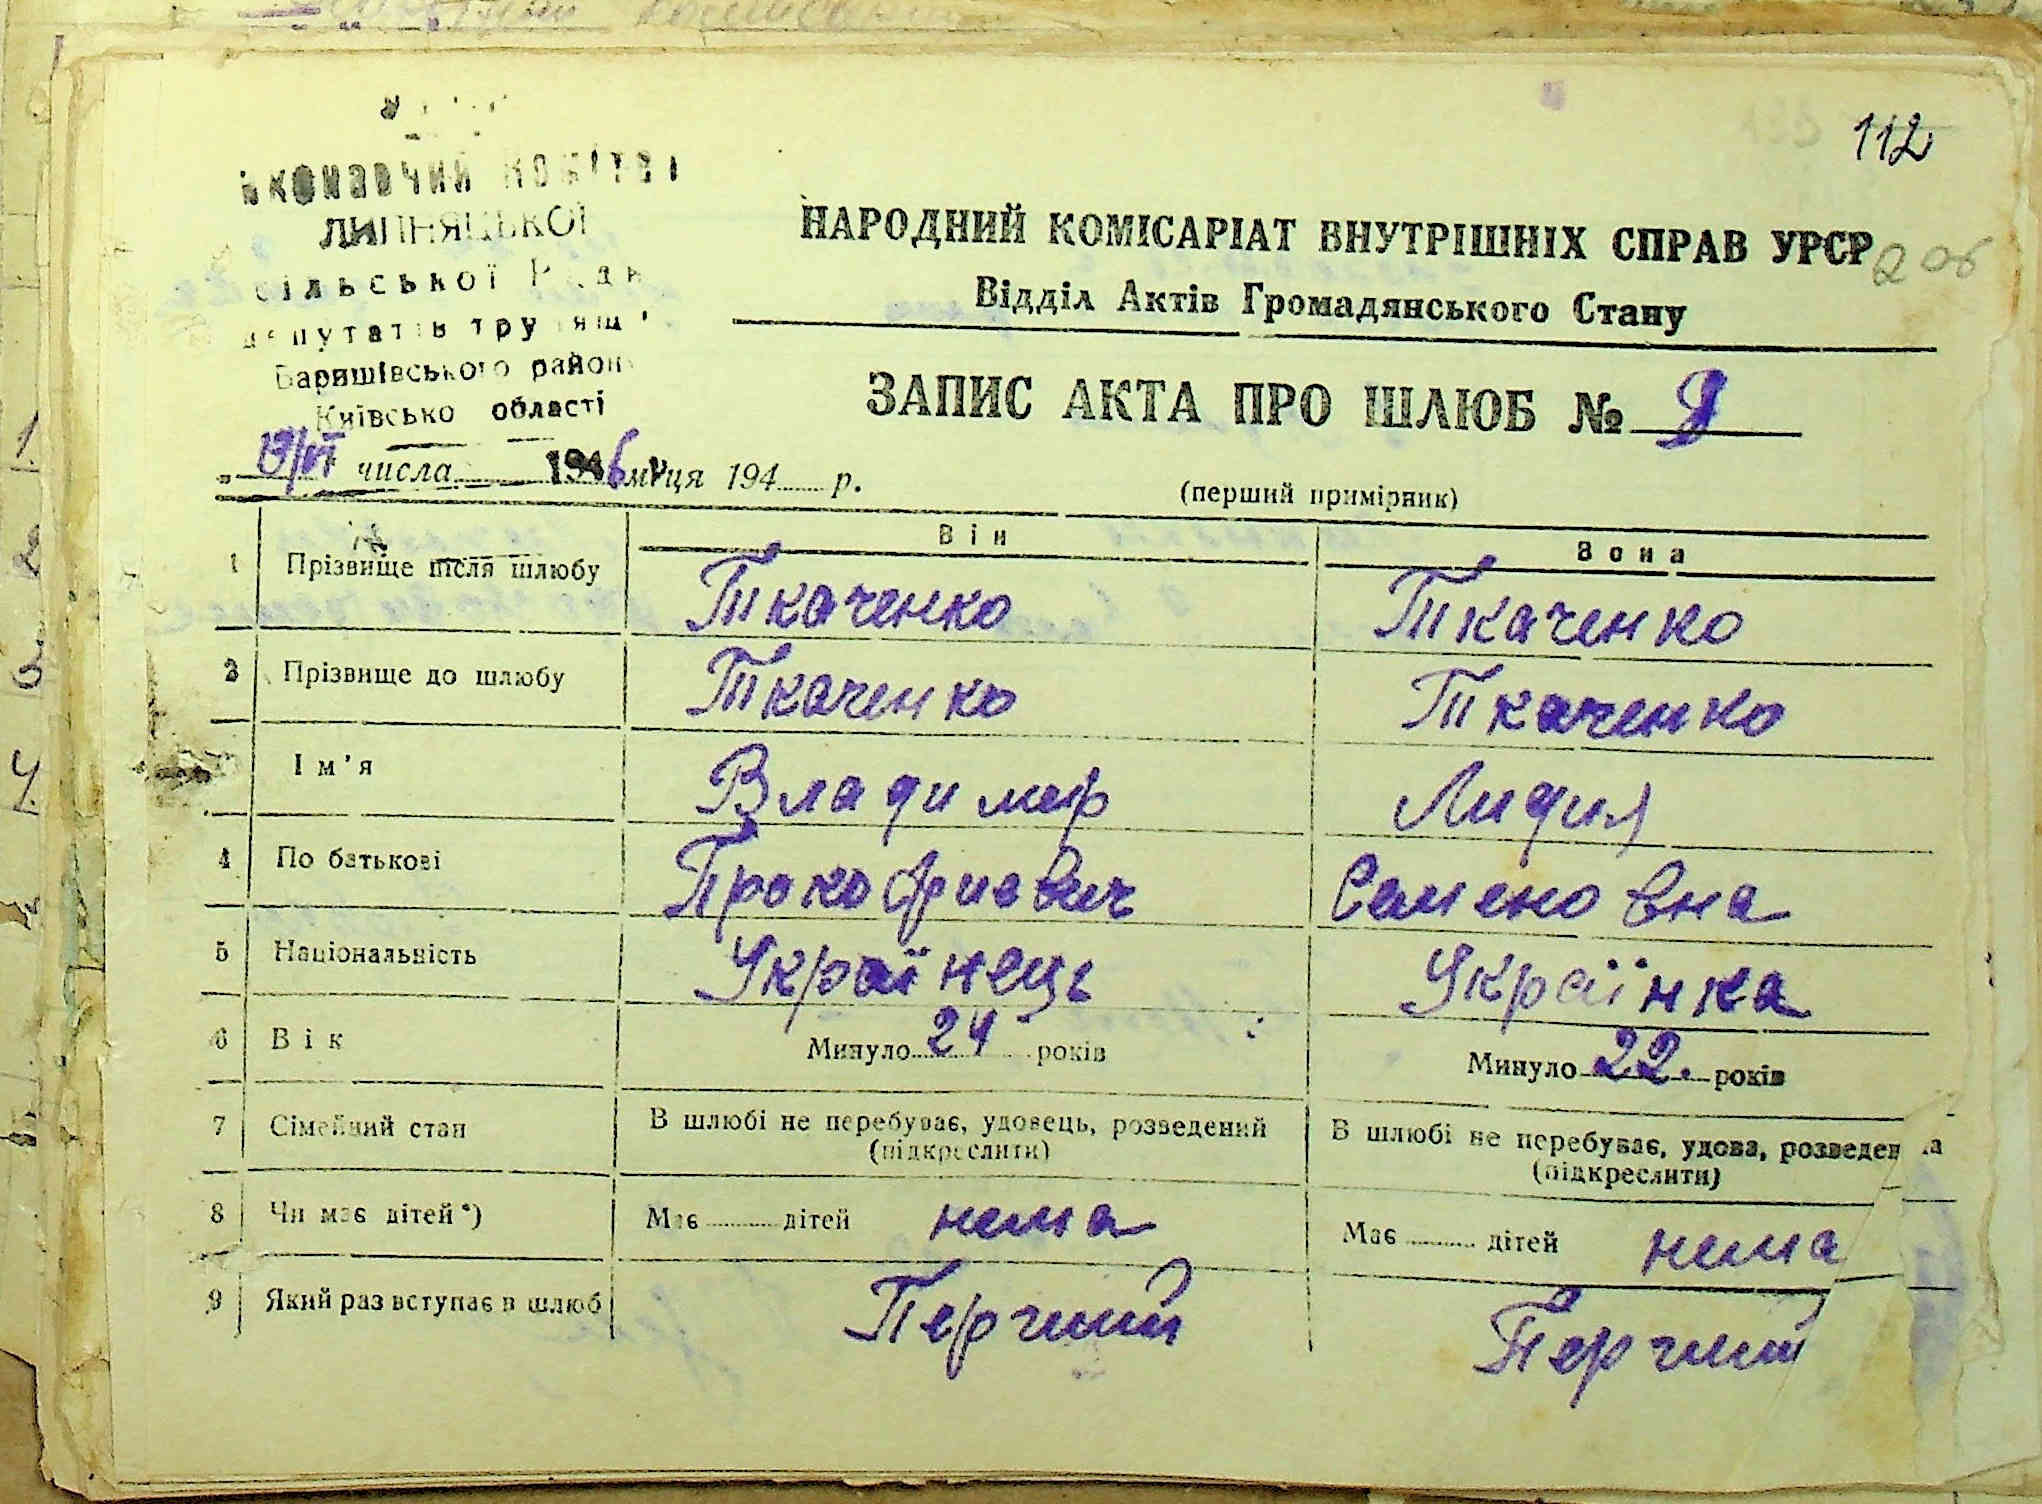 112
Виконавчий Комітет
ЛИПНЯЦЬКОЇ
сільської Ради
депутатів трудящих
Баришівського району
Київсько області
НАРОДНИЙ КОМІСАРІАТ ВНУТРІШНІХ СПРАВ УРСР
Відділ Актів Громадянського Стану
ЗАПИС АКТА ПРО ШЛЮБ № 9
числа 1946 м-ця 194 р.
(перший примірник)
Він Вона
1 Прізвище після шлюбу Ткаченко Ткаченко
2 Прізвище до шлюбу Ткаченко Ткаченко
Ім'я Владимир Лидия
4 По батькові Прокофиевич Семеновна
5 Національність Українець Українка
6 Вік Минуло 24 років Минуло 22. років
7 Сімейний стан В шлюбі не перебуває, удовець, розведений (підкреслити) В шлюбі не перебуває, удова, розведена (підкреслити)
8 Чи має дітей*) Має дітей нема Має дітей нема
9 Який раз вступає в шлюб Перчий Перчий